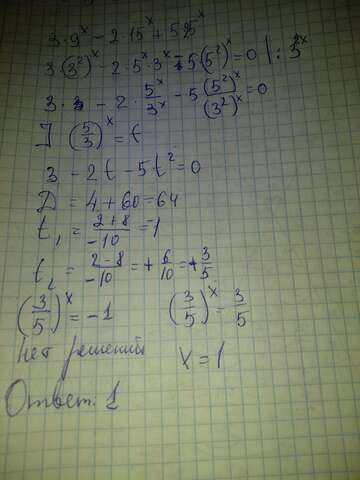 3·9ˣ - 2·15ˣ + 5·25ˣ
3·(3²)ˣ - 2·5ˣ·3ˣ - 5(5²)ˣ = 0 | : 3²ˣ
3·3 - 2·5ˣ/3ˣ - 5(5²)ˣ/(3²)ˣ = 0
] (5/3)ˣ = t
3 - 2t - 5t² = 0
D = 4 + 60 = 64
t₁ = (2+8)/-10 = -1
t₂ = (2-8)/-10 = +6/10 = +3/5
(3/5)ˣ = -1 (3/5)ˣ = 3/5
нет решений x = 1
Ответ: 1